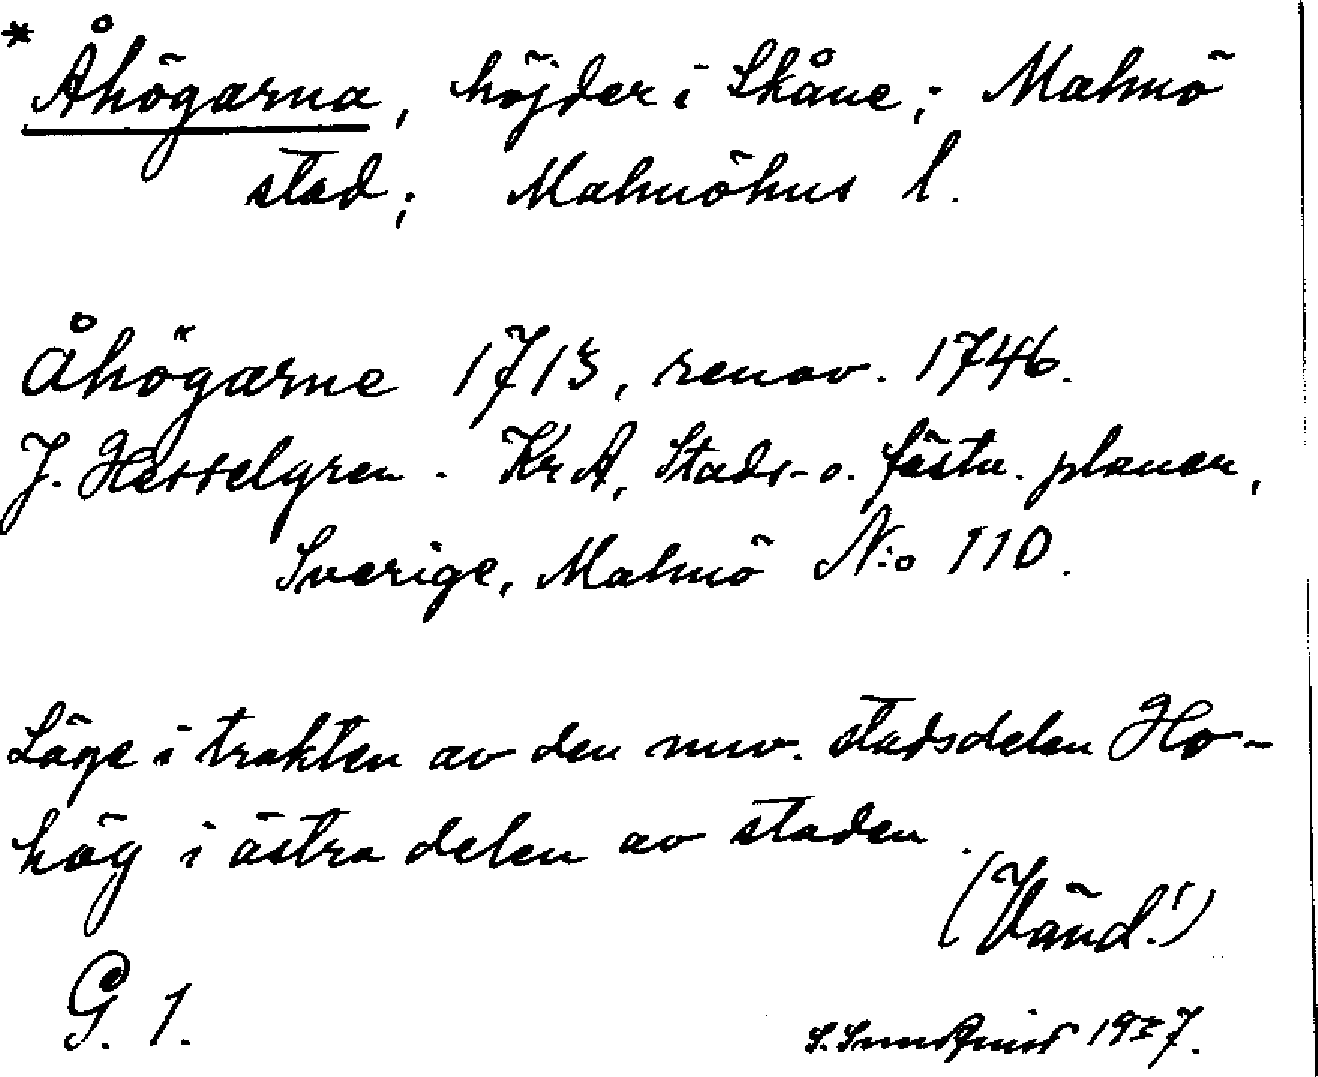 * Åhögarna, höjder i Skåne; Malmö
stad; Malmöhus l.
Åhögarne 1713, renov. 1746.
J. Hesselgren. KrA, Stads- o. fästn. planer,
Sverige, Malmö N:o 110.
Läge i trakten av den nuv. stadsdelen Ho-
hög i östra delen av staden.
(Vänd!)
G. 1.
S. 19